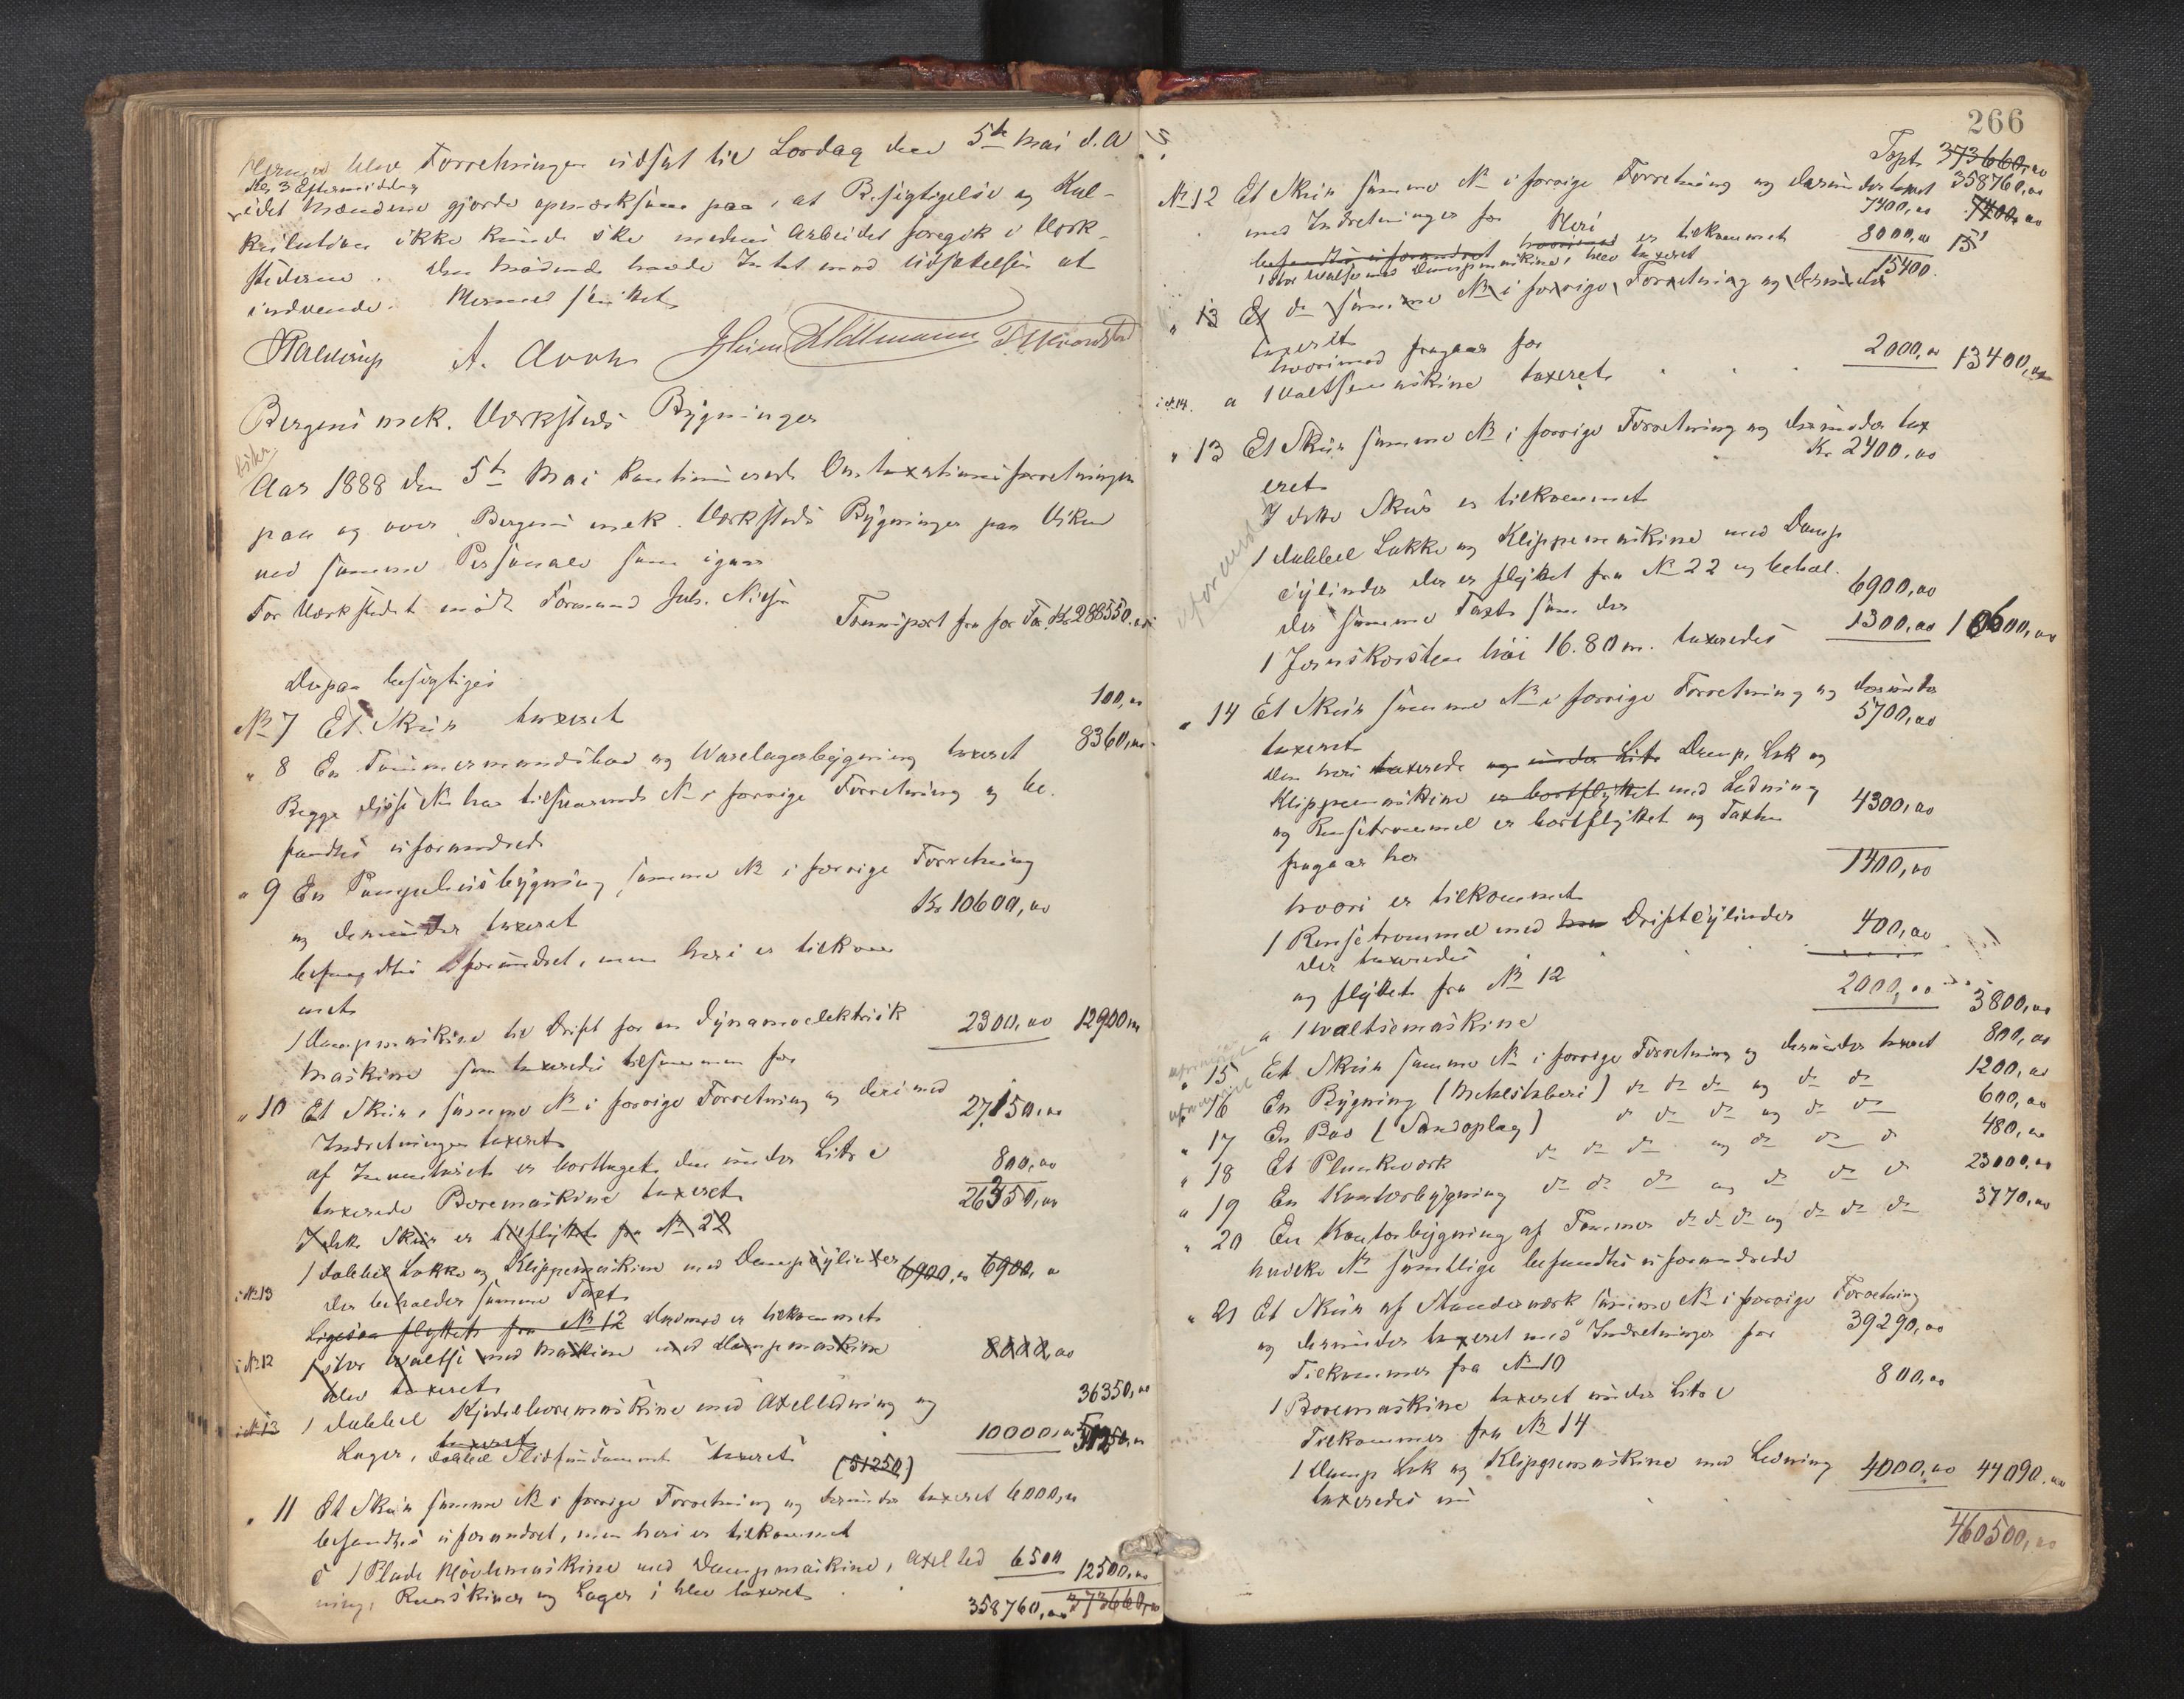 Hermed blev Forretningen udsat til Lørdag den 5te Mai d.A
Kl. 3 Eftermiddag
idet Mændene gjorde opmærksom paa, at Besigtigelse og Kal-
kulation ikke kunde ske medens Arbeidet foregik i Værk-
stederne. Den mødende havde Intet mod Udsættelsen at
indvende. Hermed sluttet
A.
Bergens mek. Værksteds Bygninger
Aar 1888 den 5te Mai kontinuerede Omtaxationsforretningen
paa og over Bergens mek. Værksteds Bygninger paa Viken
ved samme Personale som igaar
For Værkstedet mødte Formand Joh.
Transport fra for Fol. Kr. 288550.00
Derpaa besigtiges
No 7 Et Skur taxeret 100,00
" 8 En Tømmermandsbod og Varelagerbygning taxeret 8360,00
Begge disse No har tilsvarende No i forrige Forretning og be-
fandtes uforandrede
" 9 En Pumpehusbygning samme No i forrige Forretning
og derunder taxeret Kr 10600,00
befandtes uforandret, men heri er tilkom
met
1 Dampmaskine til Drift for en dynamoelektrisk
Maskine som taxeredes tilsammen for 2300,00 12900,00
" 10 Et Skur, samme No i forrige Forretning og deri med
Indretninger taxeret 27,150,00
af Inventariet er borttaget den under Litr c
taxerede Boremaskine taxeret 800,00
26350,00
I dette Skur er tilflyttet fra No 22
i No 13 1 dobbel Lokke og Klippemaskine med Dampcylinder 6900,00 6900,00
der beholder samme Taxt
Ligesaa flyttet fra No 12 derimod er tilkommet
i No 12 1 stor Valtse med Maskine med Dampmaskine 8000,00
blev taxeret
i No 13 1 dobbel Kjedelboremaskine med Axelledning og 36350,00
Lager, dobbel Slidfundament taxeret 10000,00
(51250)
" 11 Et Skur samme No i forrige Forretning og derunder taxeret 6000,00
befandtes uforandret, men heri er tilkommet
c 1 Plade Høvlemaskine med Dampmaskine, Axelled 6500 12500,00
ning, Remskiver og Lager i blev taxeret
358760,00 373660,00
266
Tspt 373660,00
No 12 Et Skur samme No i forrige Forretning og derunder taxeret 358760,00
med Indretninger for 7400,00 7400,00
Heri
befandtes uforandret hvorimod er tilkommet 8000,00
1 stor Valtse med Dampmaskine, blev taxeret 15400.
" 13 Et do samme No i forrige Forretning og derunder
taxeret
hvorimod fragaar for
i No 14. a 1 Valtsemaskine taxeret 2000,00 13400,00
" 13 Et Skur samme No i forrige Forretning og derunder tax
eret Kr 2400,00
I dette Skur er tilkommet
1 dobbel Lokke og Klippemaskine med Damp
cylinder der er flyttet fra No 22 og behol.
der samme Taxt som der 6900,00
1 Jernskorsten høi 16.80 m. taxeredes 1300,00 10600,00
" 14 Et Skur samme No i forrige Forretning og derunder
taxeret 5700,00
Den heri taxerede og under Litr Damp, Lok og
Klippemaskine er bortflyttet med Ledning
og Rensetrommel er bortflyttet og Taxten
fragaar her 4300,00
1400,00
hvori er tilkommet
1 Rensetrommel med Driftcylinder
der taxeredes 400,00
og flyttet fra No 12
a 1 Valtsemaskine 2000,00 3800,00
" 15 Et Skur samme No i forrige Forretning og derunder taxeret 800,00
" 16 En Bygning (Metalstøberi) do do do og do do 1200,00
" 17 En Bod (Sandoplag) do do do og do do 600,00
" 18 Et Plankværk do do do og do do do 480,00
" 19 En Kontorbygning do do do og do do do 23000,00
" 20 En Kontorbygning af Tømmer do do do og do do do 3770,00
hvilke No samtlige befandtes uforandrede
" 21 Et Skur af Standerværk samme No i forrige Forretning
og derunder taxeret med Indretninger for 39290,00
Tilkommer fra No 10
1 Boremaskine taxeret under Litr c 800,00
Tilkommer fra No 14
1 Damp Lok og Klippemaskine med Ledning
taxeredes nu 4000,00 44090.00
460500,00